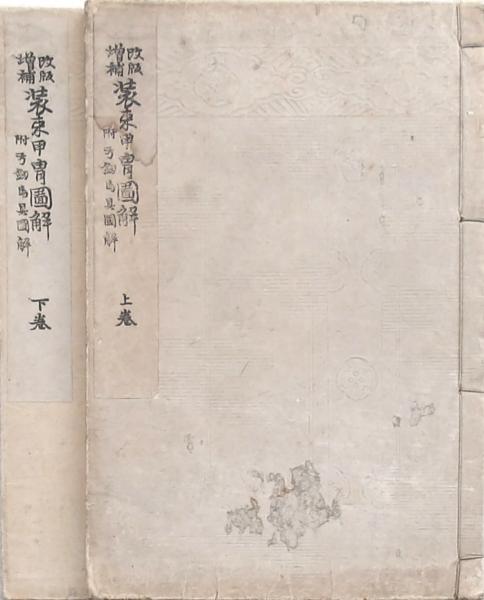 改版
増補
装束甲冑圖解
附弓劔馬具圖解
上巻
改版
増補
装束甲冑圖解
附弓劔馬具圖解
下巻